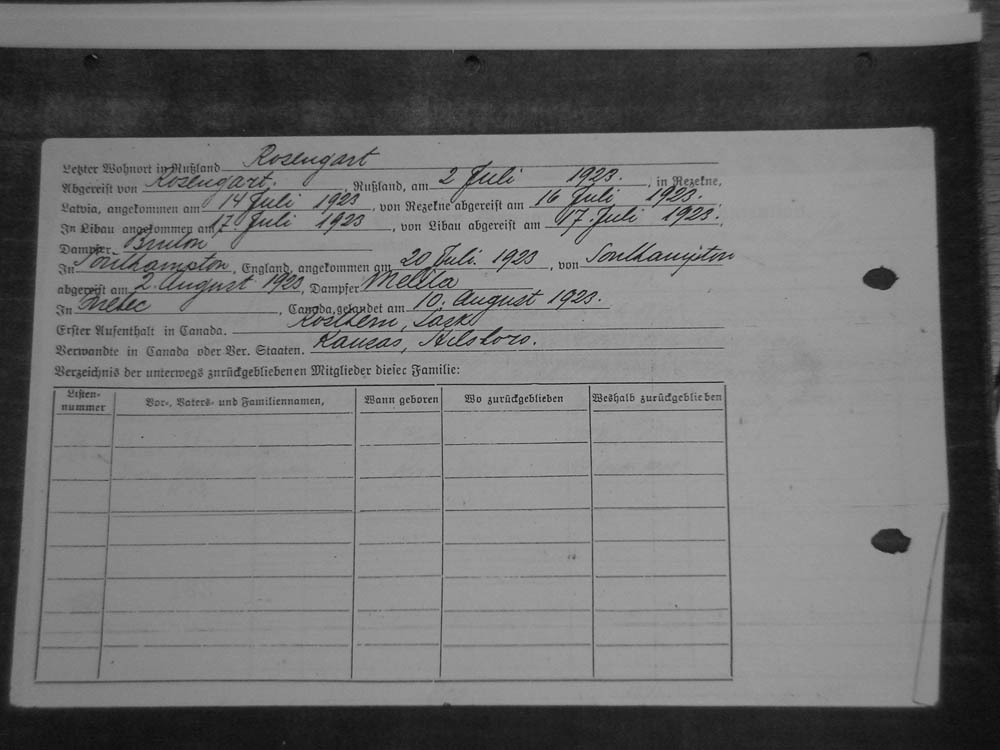 Letzter Wohnort in Rußland Rosengart
Abgereist von Rosengart. , Rußland, am 2 Juli 1923. , in Rezekne,
Latvia, angekommen am 14 Juli 1923 , von Rezekne abgereist am 16 Juli 1923.
In Libau angekommen am 17 Juli 1923 , von Libau abgereist am 17. Juli 1923.
Dampfer Bruton
In Southampton, England, angekommen am 20 Juli 1923 , von Southampton
abgereist am 2. August 1923, Dampfer Melita
In Quebec , Canada, gelandet am 10. August 1923.
Erster Aufenthalt in Canada. Rosthern, Sask.
Verwandte in Canada oder Ver. Staaten. Kansas, Hilsboro.
Verzeichnis der unterwegs zurückgebliebenen Mitglieder dieser Familie:
Listen-nummer Vor-, Vaters- und Familiennamen, Wann geboren Wo zurückgeblieben Weshalb zurückgeblieben